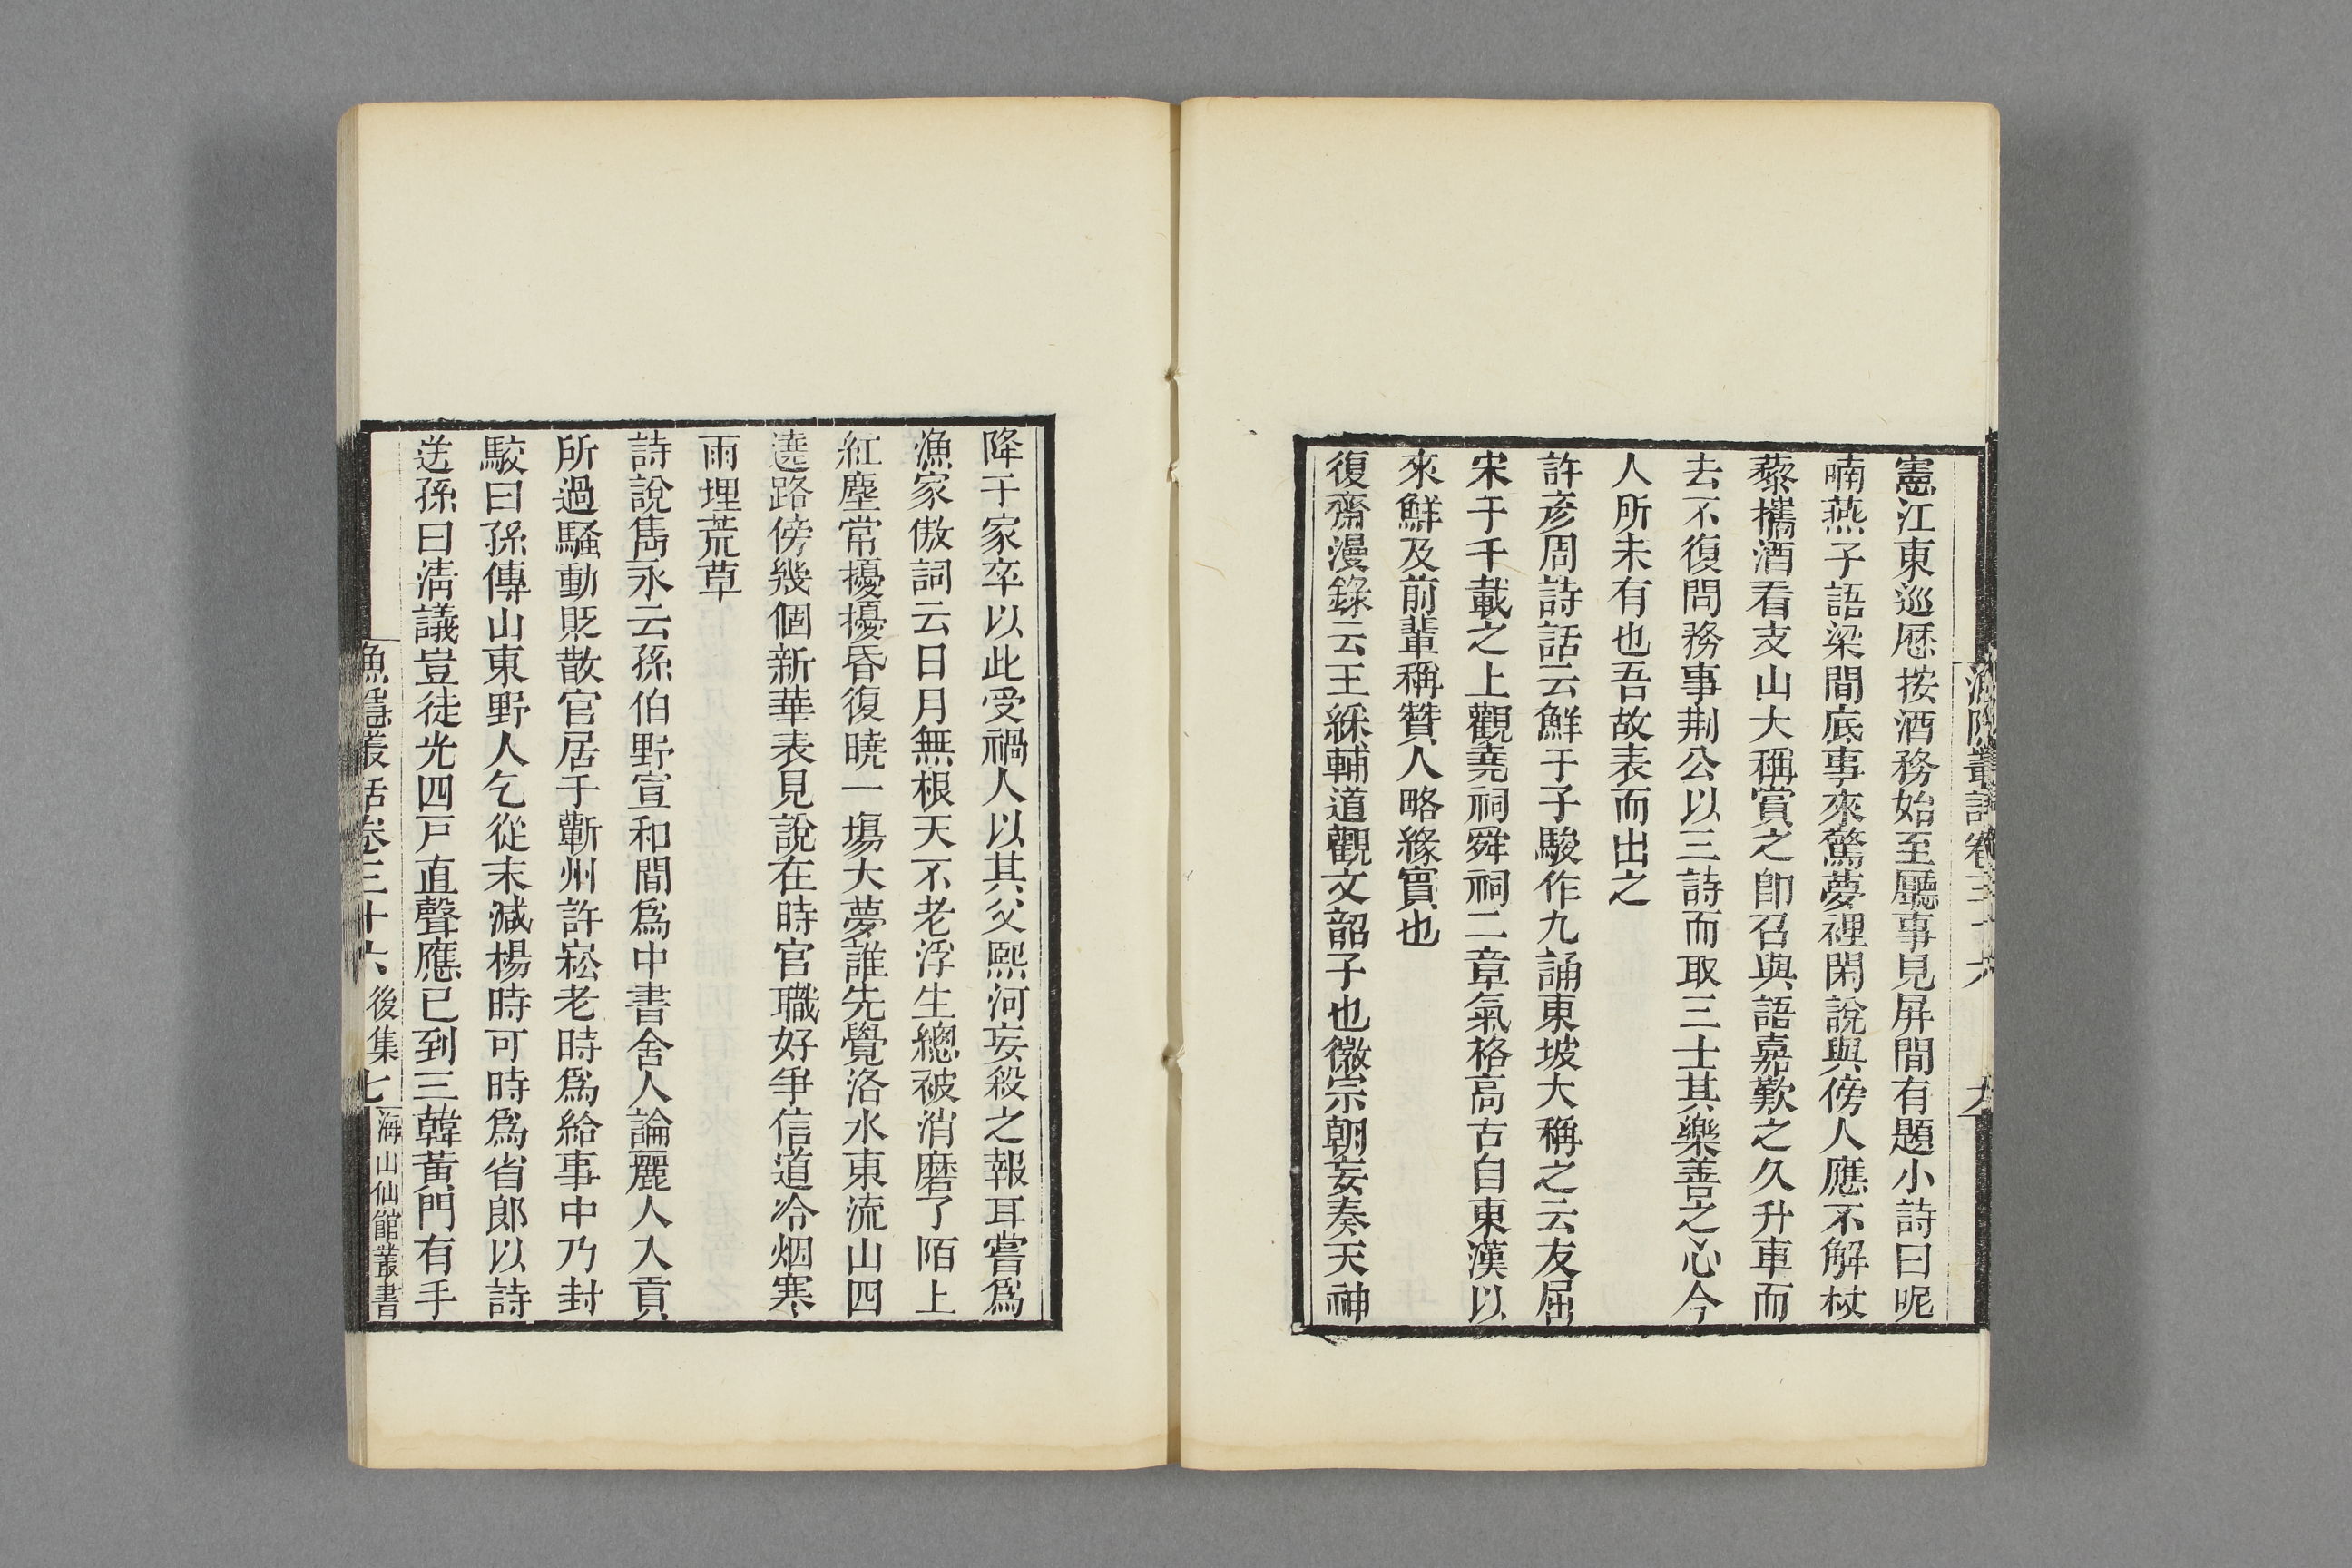 憲江東巡厯按酒務始至廳事見屏間有題小詩曰呢
喃燕子語梁間底事來驚夢裡閑說與傍人應不解杖
藜攜酒看支山大稱賞之卽召與語嘉歎之久升車而
去不復問務事荆公以三詩而取三士其樂善之心今
人所未有也吾故表而出之
許彥周詩話云鮮于子駿作九誦東坡大稱之云友屈
宋于千載之上觀堯祠舜祠二章氣格高古自東漢以
來鮮及前輩稱贊人略緣實也
復齋漫錄云王綵輔道觀文韶子也徽宗朝妄奏天神
降于家卒以此受禍人以其父熙河妄殺之報耳嘗爲
漁家傲詞云日月無根天不老浮生總被消磨了陌上
紅塵常擾擾昏復曉一塲大夢誰先覺洛水東流山四
遶路傍幾個新華表見說在時官職好爭信道冷烟寒
雨埋荒草
詩說雋永云孫伯野宣和間爲中書舍人論麗人入貢
所過騷動貶散官居于蘄州許崧老時爲給事中乃封
駮曰孫傳山東野人乞從末減楊時可時爲省郎以詩
送孫曰淸議豈徒光四戸直聲應已到三韓黃門有手
漁隱叢話卷三十六 後集 七 海山仙館叢書